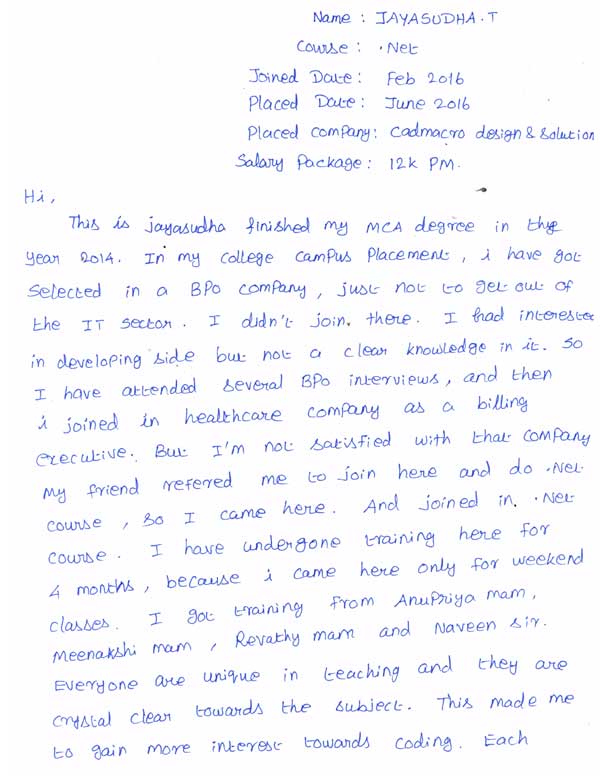 Name : JAYASUDHA.T
Course : .Net
Joined Date : Feb 2016
Placed Date : June 2016
Placed company : Cadmacro design & solution
Salary Package : 12k PM.
Hi,
This is jayasudha finished my MCA degree in the
Year 2014. In my college campus Placement, i have got
selected in a BPO company, just not to get out of
the IT sector. I didn't join. there. I had interested
in developing side but not a clear knowledge in it. So
I have attended several BPO interviews, and then
i joined in healthcare company as a billing
executive. But I'm not satisfied with that company
My friend refered me to join here and do .Net
course, So I came here. And joined in .Net
course. I have undergone training here for
4 months, because i came here only for weekend
classes. I got training from AnuPriya mam,
Meenakshi mam, Revathy mam and Naveen sir.
Everyone are unique in teaching and they are
crystal clear towards the subject. This made me
to gain more interest towards coding. Each